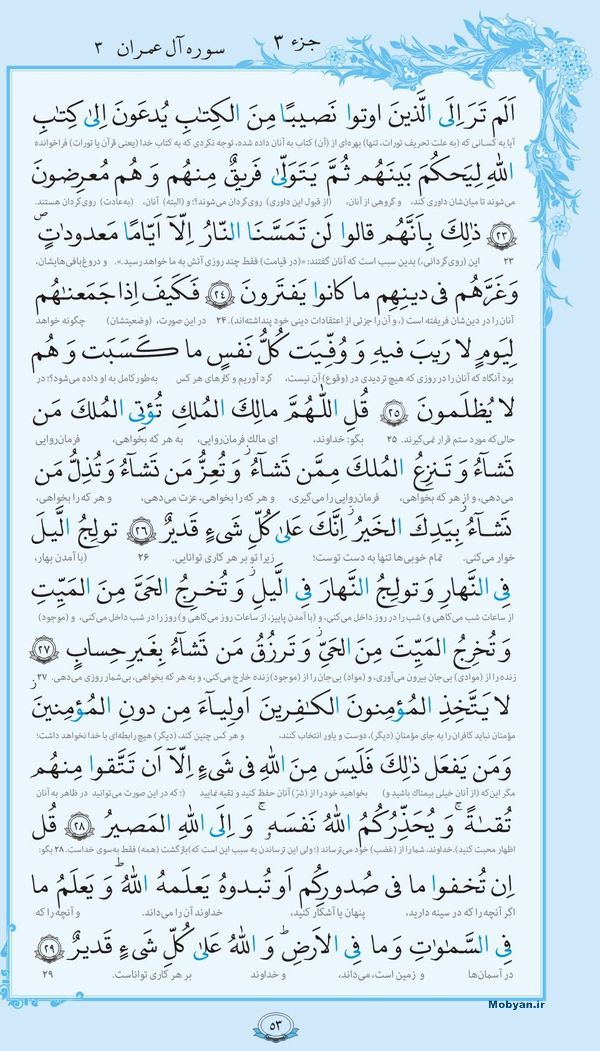 جزء ۳
سوره آل عمران ۳
اَلَم تَرَ اِلَی الَّذینَ اوتوا نَصیبًا مِنَ الکِتابِ یُدعَونَ اِلیٰ کِتابِ
آیا به کسانی که (به علت تحریف تورات، تنها) بهره‌ای از (آن) کتاب به آنان داده شده، توجه نکردی که به کتاب خدا (یعنی قرآن یا تورات) فراخوانده
اللهِ لِیَحکُمَ بَینَهُم ثُمَّ یَتَوَلّیٰ فَریقٌ مِنهُم وَ هُم مُعرِضونَ
می‌شوند تا میان‌شان داوری کند، و گروهی از آنان، (از قبول این داوری) روی‌گردان می‌شوند؟! و (البته) آنان، (به‌عادت) روی‌گردان هستند.
۲۳ ذٰلِكَ بِاَنَّهُم قالوا لَن تَمَسَّنَا النّارُ اِلّا اَیّامًا مَعدوداتٍ ۖ
۲۳ این (روی‌گردانی،) بدین سبب است که آنان گفتند: «(در قیامت) فقط چند روزی آتش به ما خواهد رسید.»، و دروغ‌بافی‌هایشان،
وَ غَرَّهُم فی دینِهِم ما کانوا یَفتَرونَ ۲۴ فَکَیفَ اِذا جَمَعناهُم
آنان را در دین‌شان فریفته است (، و آن را جزئی از اعتقادات دینی خود پنداشته‌اند). ۲۴ در این صورت، (وضعیتشان) چگونه خواهد
لِیَومٍ لا رَیبَ فیهِ وَ وُفِّیَت کُلُّ نَفسٍ ما کَسَبَت وَ هُم
بود آنگاه که آنان را در روزی که هیچ تردیدی در (وقوع) آن نیست، گرد آوریم و کارهای هر کس به‌طور کامل به او داده می‌شود؟؛ در
لا یُظلَمونَ ۲۵ قُلِ اللّٰهُمَّ مالِكَ المُلكِ تُؤتِی المُلكَ مَن
حالی‌که مورد ستم قرار نمی‌گیرند. ۲۵ بگو: خداوند، ای مالك فرمان‌روایی، به هر که بخواهی، فرمان‌روایی
تَشآءُ وَ تَنزِعُ المُلكَ مِمَّن تَشآءُ وَ تُعِزُّ مَن تَشآءُ وَ تُذِلُّ مَن
می‌دهی، و از هر که بخواهی، فرمان‌روایی را می‌گیری، و هر که را بخواهی، عزت می‌دهی، و هر که را بخواهی،
تَشآءُ ۖ بِیَدِكَ الخَیرُ ۖ اِنَّكَ عَلیٰ کُلِّ شَیءٍ قَدیرٌ ۲۶ تولِجُ الَّیلَ
خوار می‌کنی. تمام خوبی‌ها تنها به دست توست؛ زیرا تو بر هر کاری توانایی. ۲۶ (با آمدن بهار،
فِی النَّهارِ وَ تولِجُ النَّهارَ فِی الَّیلِ ۖ وَ تُخرِجُ الحَیَّ مِنَ المَیِّتِ
از ساعات شب می‌کاهی و) شب را در روز داخل می‌کنی، و (با آمدن پاییز، از ساعات روز می‌کاهی و) روز را در شب داخل می‌کنی، و (موجود)
وَ تُخرِجُ المَیِّتَ مِنَ الحَیِّ ۖ وَ تَرزُقُ مَن تَشآءُ بِغَیرِ حِسابٍ ۲۷
زنده را از (مواد) بی‌جان بیرون می‌آوری، و (مواد) بی‌جان را از (موجود) زنده خارج می‌کنی، و به هر که بخواهی، بی‌شمار روزی می‌دهی. ۲۷
لا یَتَّخِذِ المُؤمِنونَ الکافِرینَ اَولِیآءَ مِن دونِ المُؤمِنینَ ۖ
مؤمنان نباید کافران را به جای مؤمنان (دیگر)، دوست و یاور انتخاب کنند، و هر کس چنین کند، (دیگر) هیچ رابطه‌ای با خدا نخواهد داشت؛
وَمَن یَفعَل ذٰلِكَ فَلَیسَ مِنَ اللهِ فی شَیءٍ اِلّا اَن تَتَّقوا مِنهُم
مگر این‌که (از آنان خیلی بیمناك باشید و) بخواهید خود را از (شرّ) آنان حفظ کنید و تقیه نمایید (؛ که در این صورت می‌توانید در ظاهر به آنان
تُقىٰةً ۚ وَ یُحَذِّرُکُمُ اللهُ نَفسَهو ۗ وَ اِلَی اللهِ المَصیرُ ۲۸ قُل
اظهار محبت کنید). خداوند، شما را از (غضب) خود می‌ترساند (؛ ولی این ترساندن به سبب این است که) بازگشت (همه) فقط به‌سوی خداست. ۲۸ بگو:
اِن تُخفوا ما فی صُدورِکُم اَو تُبدوهُ یَعلَمهُ اللهُ ۗ وَ یَعلَمُ ما
اگر آنچه را که در سینه دارید، پنهان یا آشکار کنید، خداوند آن را می‌داند. و آنچه را که
فِی السَّمٰوٰتِ وَ ما فِی الاَرضِ ۗ وَ اللهُ عَلیٰ کُلِّ شَیءٍ قَدیرٌ ۲۹
در آسمان‌ها و زمین است، می‌داند، و خداوند بر هر کاری تواناست. ۲۹
Mobyan.ir
۵۳